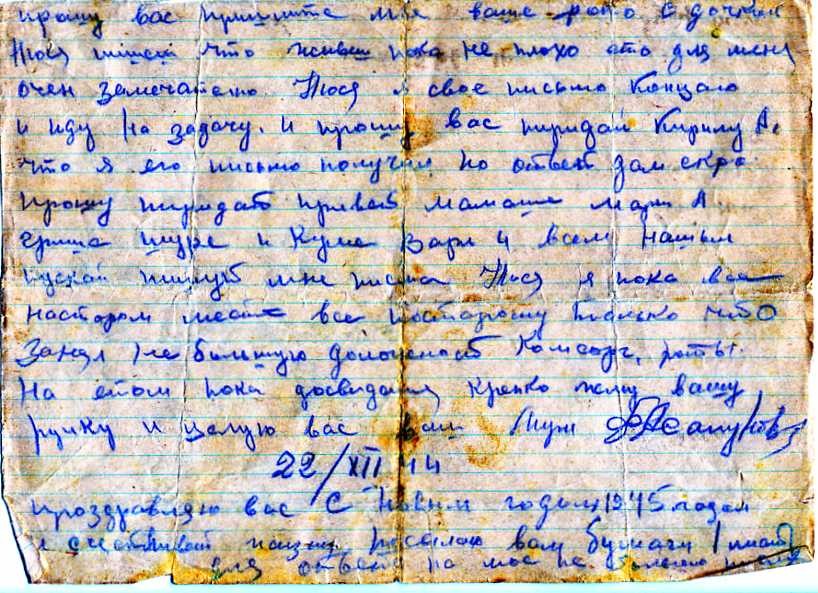 прошу вас пришлите мне ваше фото с дочкой
Тюся пишеш что живеш пока не плохо ето для меня
очен замечателно Тюся я свое письмо концаю
и иду на задачу. И прошу вас пиридай Кирилу А.
что я его письмо получил но ответ дам скро
прошу пиридат привет мамаше Мари А.
грише шуре и Куме Варе и всем нашым
пускай пишут мне писма Тюся я пока все
настаром месте все постарому толко что
занял не большую должност Комсорг, роты.
На етом пока досвидания крепко жму вашу
ручку и целую вас ваш Муж
22/XII 44
проздравляю вас с новым годом 1945 годом
и счастливой жизни посылаю вам бумаги 1 лист
для ответа на мое не